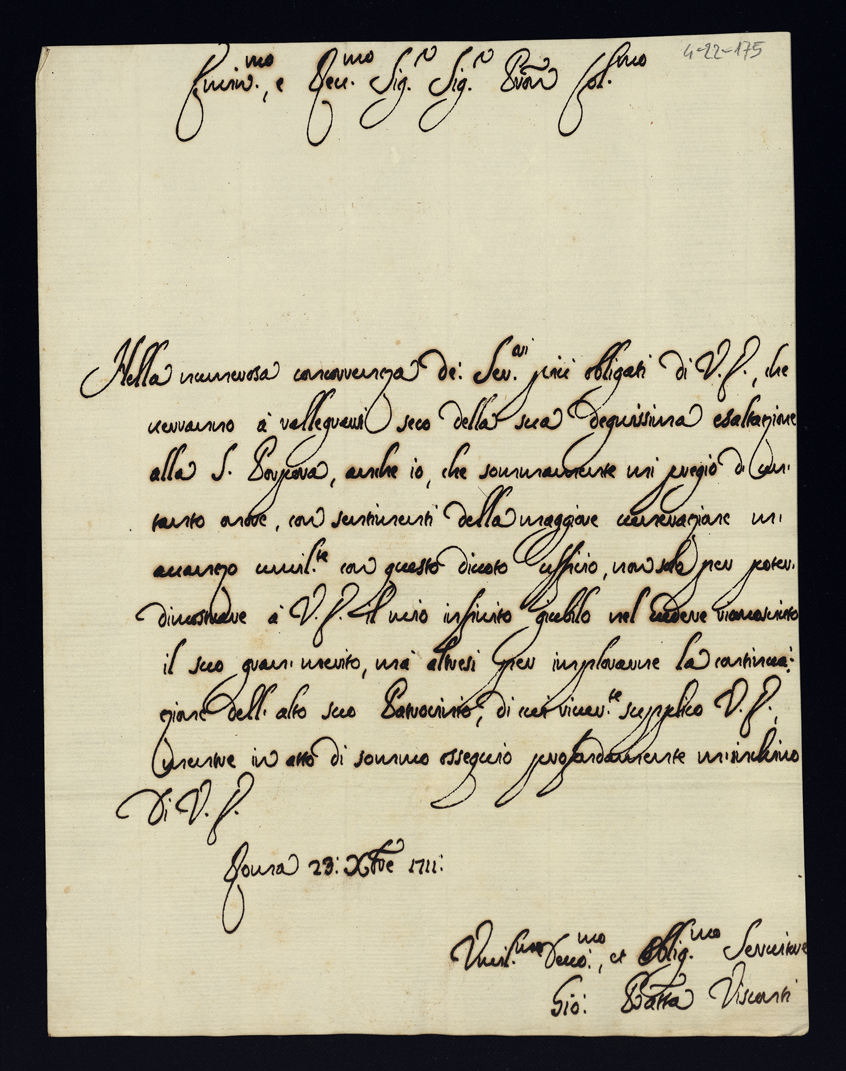 4-22-175
Emin.mo, e Rev.mo Sig.r Sig.r Pron Col.mo
Nella numerosa concorrenza de: Ser.ori più obligati di V. E., che
verranno à rallegrarsi seco della sua degnissima esaltazione
alla S. Porpora, anche io, che sommamente mi pregio di un
tanto onore, con sentimenti della maggiore venerazione mi
avanzo umil.te con questo divoto ufficio, non solo per poter
dimostrare à V. E. il mio infinito giubilo nel vedere riconosciuto
il suo gran merito, mà altresi per implorarne la continua:
zione dell' alto suo Patrocinio, di cui river.te supplico V. E.,
mentre in atto di sommo ossequio profondamente mi inchino
Di V. E.
Roma 23: Xbre 1711:
Umil.mo Devo.mo, et Oblig.mo Servitore
Gio: Batta Visconti